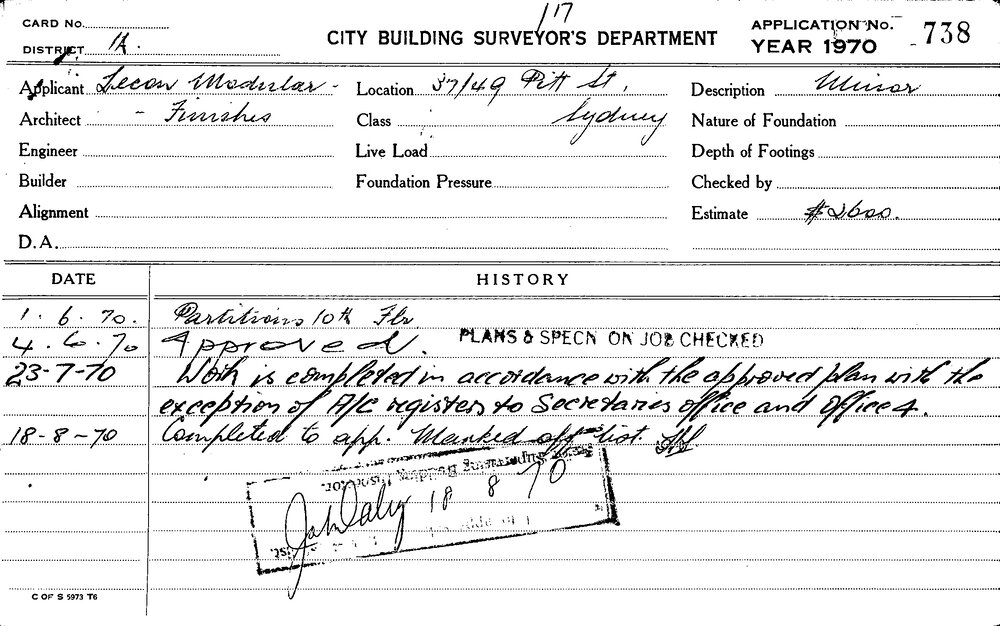 117
CARD No.
DISTRICT 1A.
CITY BUILDING SURVEYOR'S DEPARTMENT
APPLICATION No. 738
YEAR 1970
Applicant Lecon Modular -
Location 37/49 Pitt St,
Description Minor
Architect - Finishes
Class Sydney
Nature of Foundation
Engineer
Live Load
Depth of Footings
Builder
Foundation Pressure
Checked by
Alignment
Estimate $2600.
D.A.
DATE HISTORY
1. 6. 70. Partitions 10th Flr
4. 6. 70 Approved. PLANS & SPECN ON JOB CHECKED
23-7-70 Work is completed in accordance with the approved plan with the
exception of A/C registers to Secretaries office and office 4.
18-8-70 Completed to app. Marked off list.
John Daly 18 8 70
C OF S 5973 T6